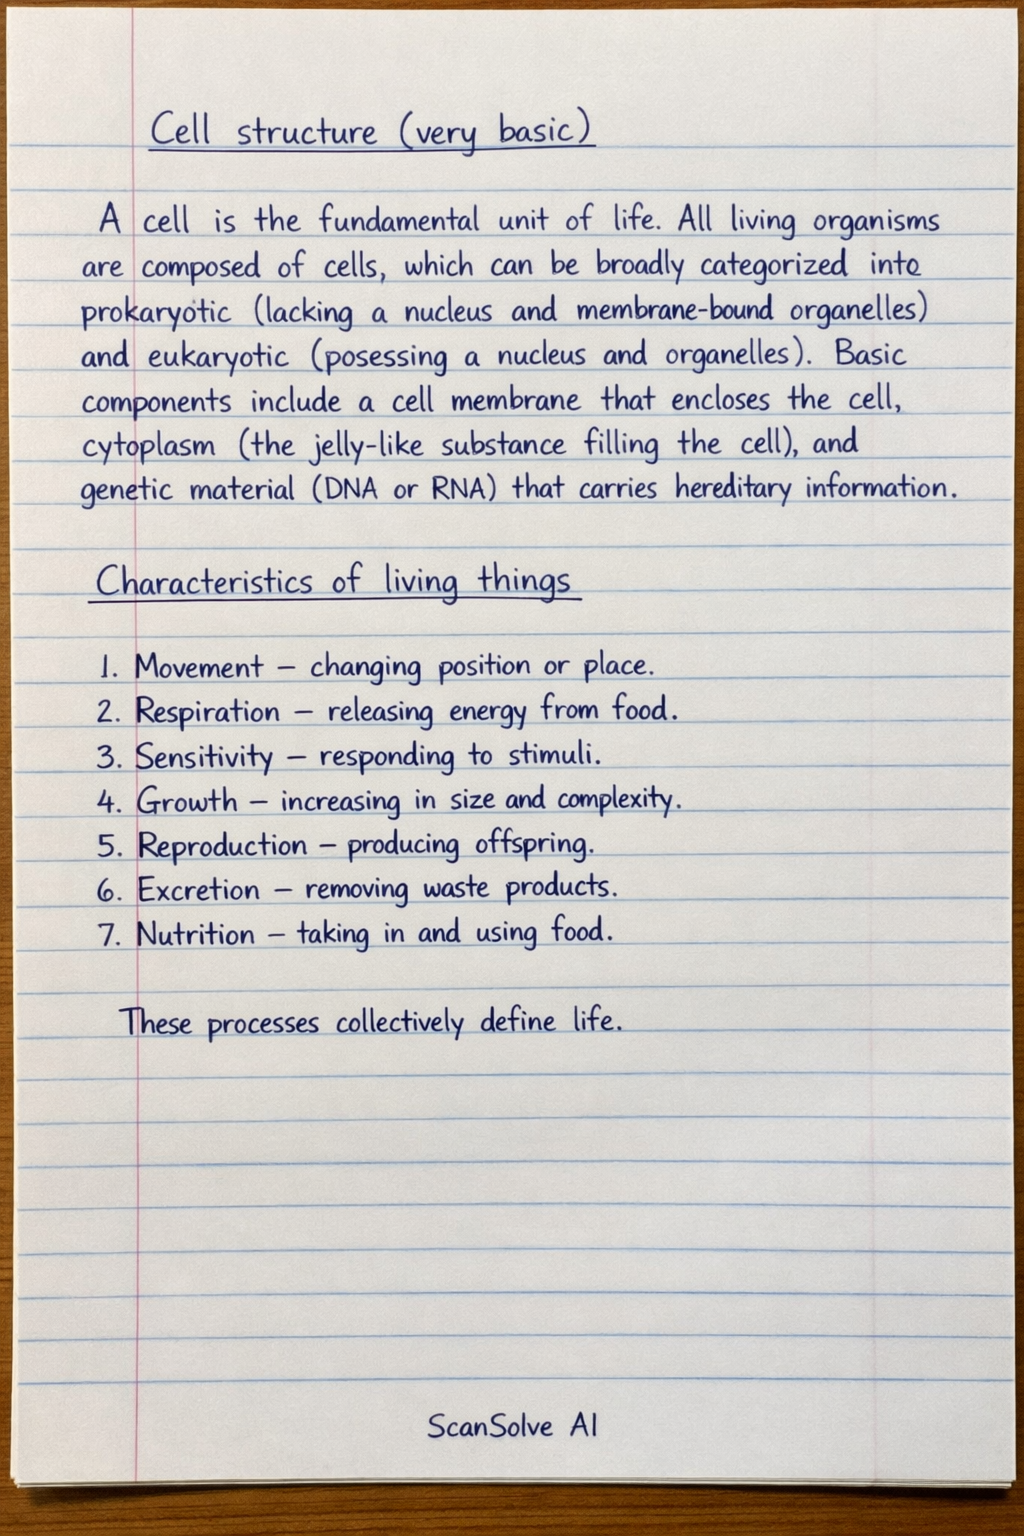 Cell structure (very basic)
A cell is the fundamental unit of life. All living organisms
are composed of cells, which can be broadly categorized into
prokaryotic (lacking a nucleus and membrane-bound organelles)
and eukaryotic (posessing a nucleus and organelles). Basic
components include a cell membrane that encloses the cell,
cytoplasm (the jelly-like substance filling the cell), and
genetic material (DNA or RNA) that carries hereditary information.
Characteristics of living things
1. Movement – changing position or place.
2. Respiration – releasing energy from food.
3. Sensitivity – responding to stimuli.
4. Growth – increasing in size and complexity.
5. Reproduction – producing offspring.
6. Excretion – removing waste products.
7. Nutrition – taking in and using food.
These processes collectively define life.
ScanSolve AI